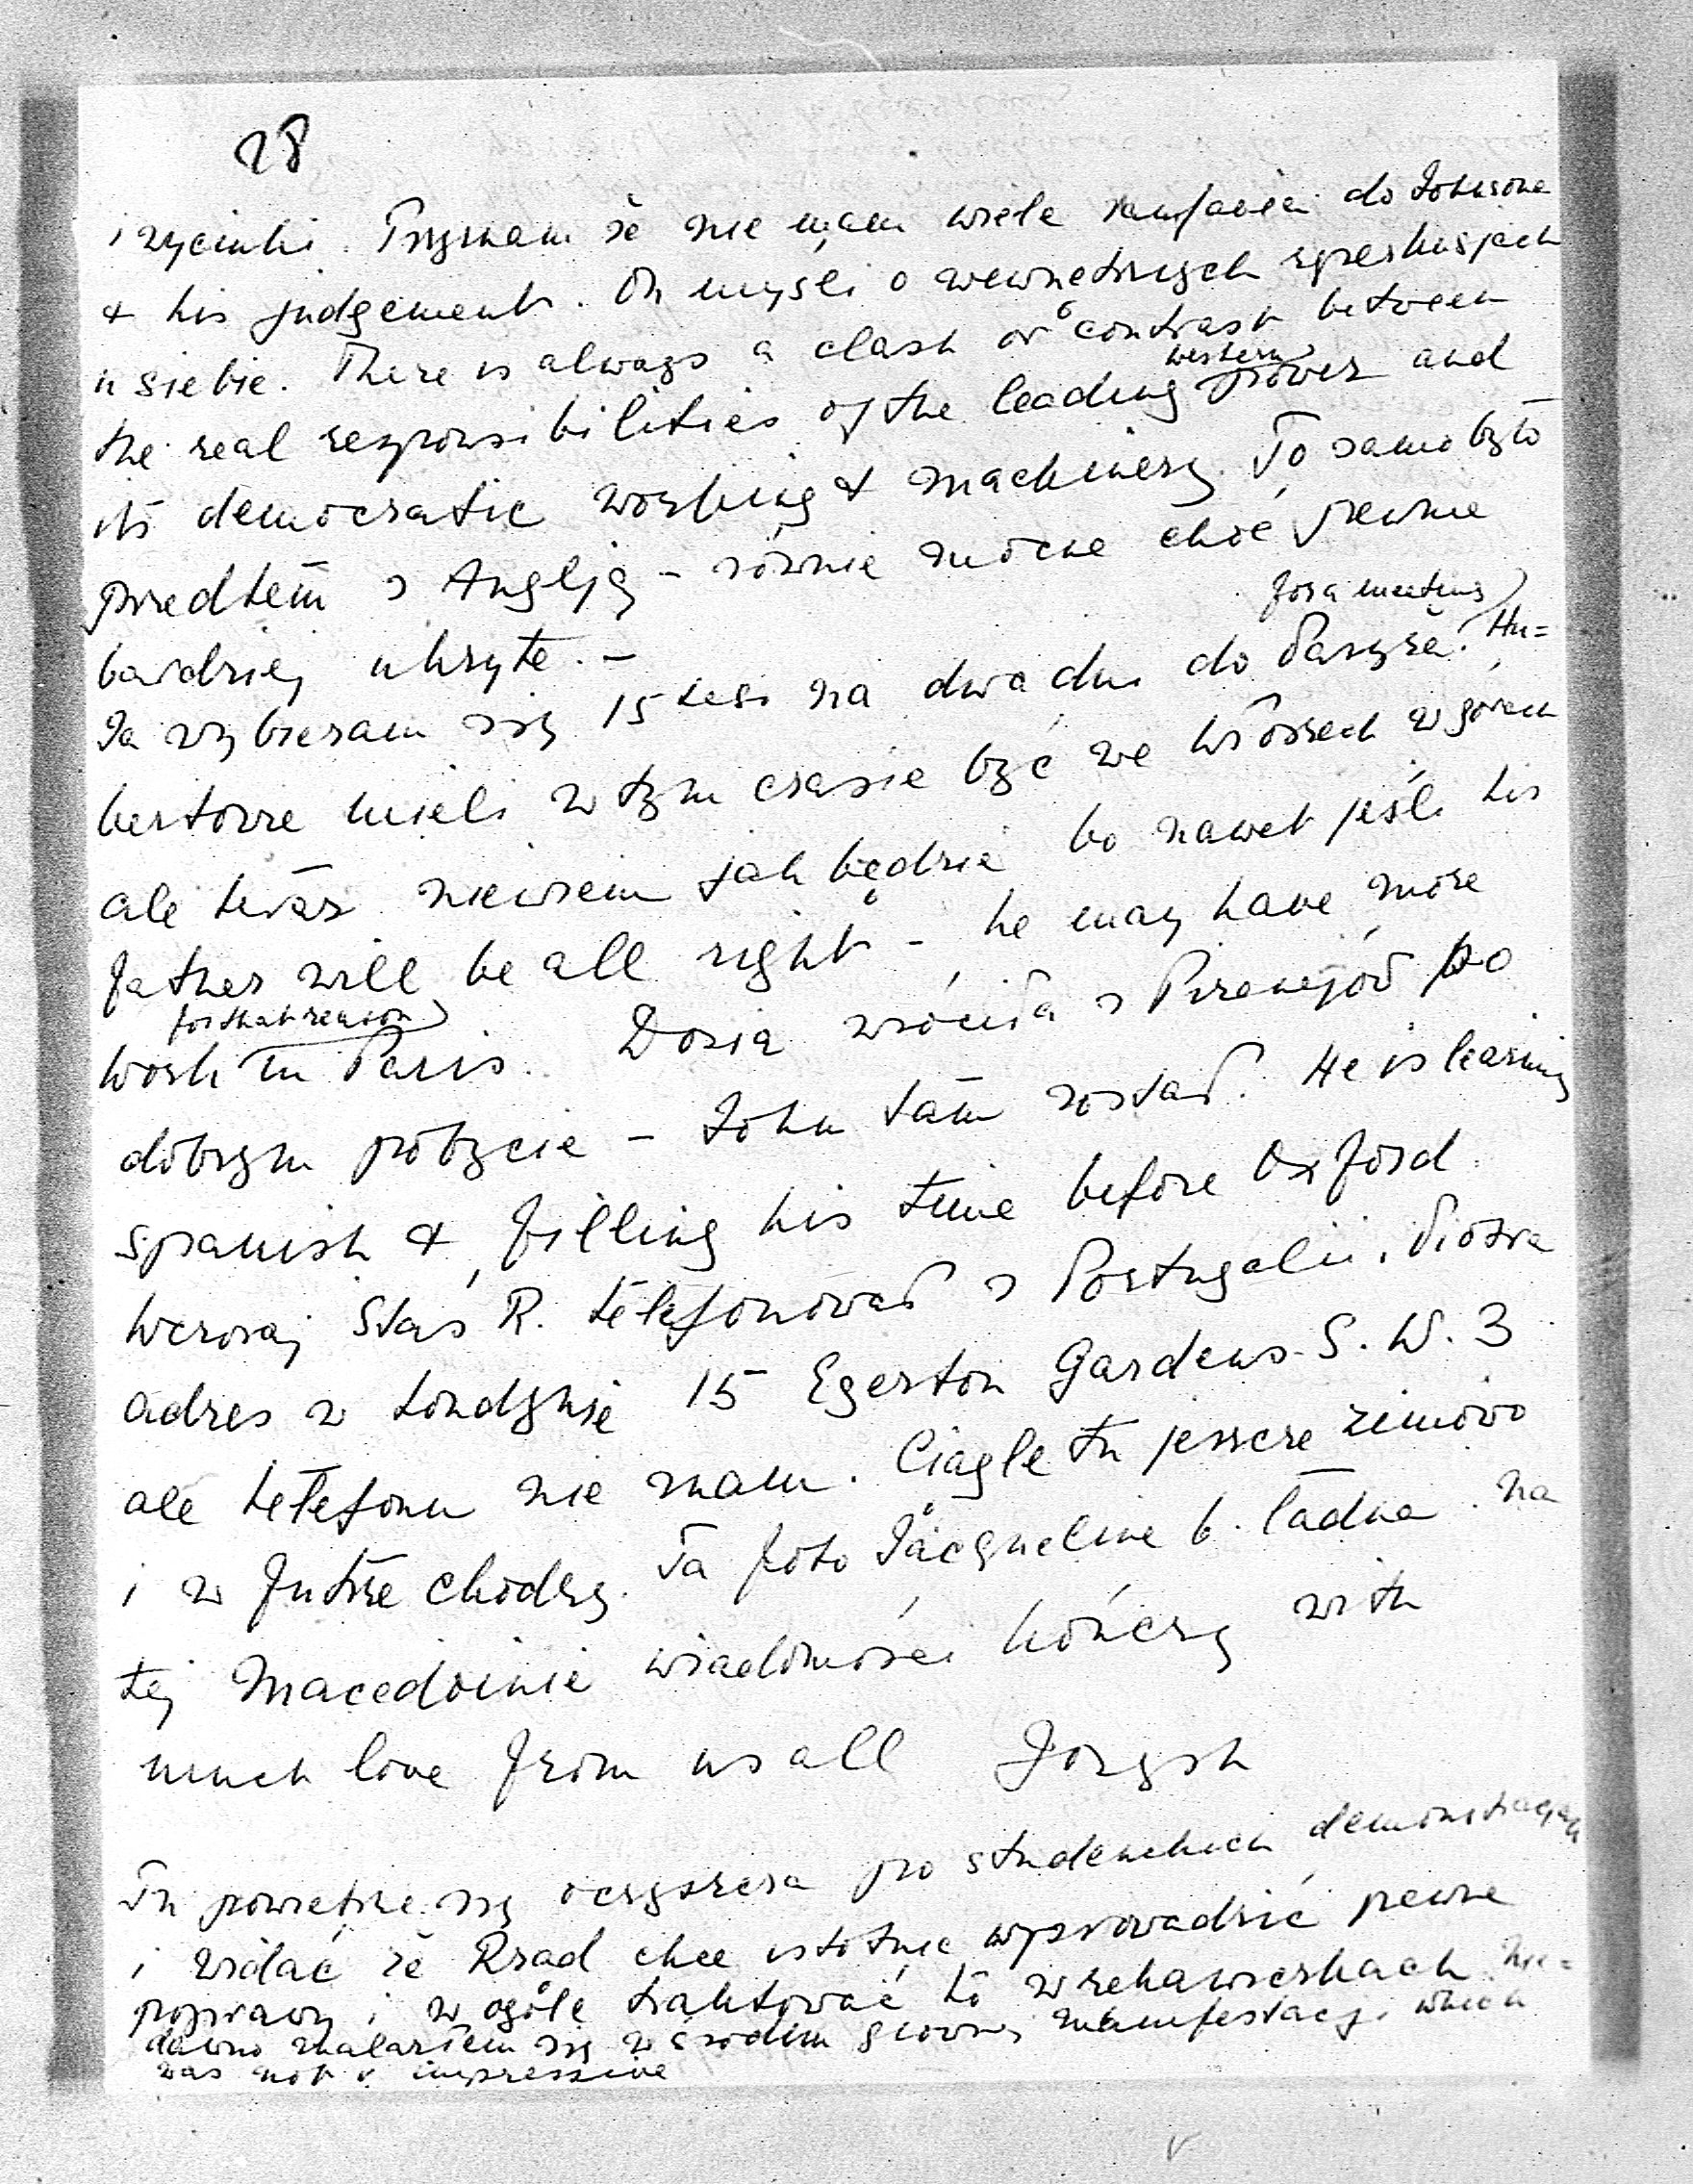 28
i wycinki. Przyznam że nie mam wiele zaufania do Johnsona
& his judgement. On myśli o wewnetrznych reperkusjach
u siebie. There is always a clash or contrast between
the real responsibilities of the leading western power and
its democratic working & machinery. To samo było
przedtem z Anglją – równie mocne choć pewnie
bardziej ukryte. –
Ja wybieram się 15tego na dwa dni do Paryża (for a meeting) Hu=
bertowie mieli w tym czasie być we Włoszech w górach
ale teraz niewiem jak będzie bo nawet jeśli his
father will be all right – he may have more
work in Paris for that reason. Dosia wróciła z Pirenejów po
dobrym pobycie – John tam został. He is learning
spanish & filling his time before Oxford.
Wczoraj Staś R. telefonował z Portugalii.
adres w Londynie 15 Egerton Gardens S.W.3
ale telefonu nie mam. Ciagle tu jeszcze zimowo
i w futrze chodzę. Ta foto Jacqueline b. ładna. na
tej Macedoinie wiadomości kończę with
much love from us all Jorysh
Tu powietrze się oczyszcza po studenckich demonstracjach
i widać że Rząd chce istotnie wprowadzić pewne
poprawy i w ogóle traktować to w rekawiczkach. Nie=
dawno znalazłem się w środku głównej manifestacji which
was not v impressive